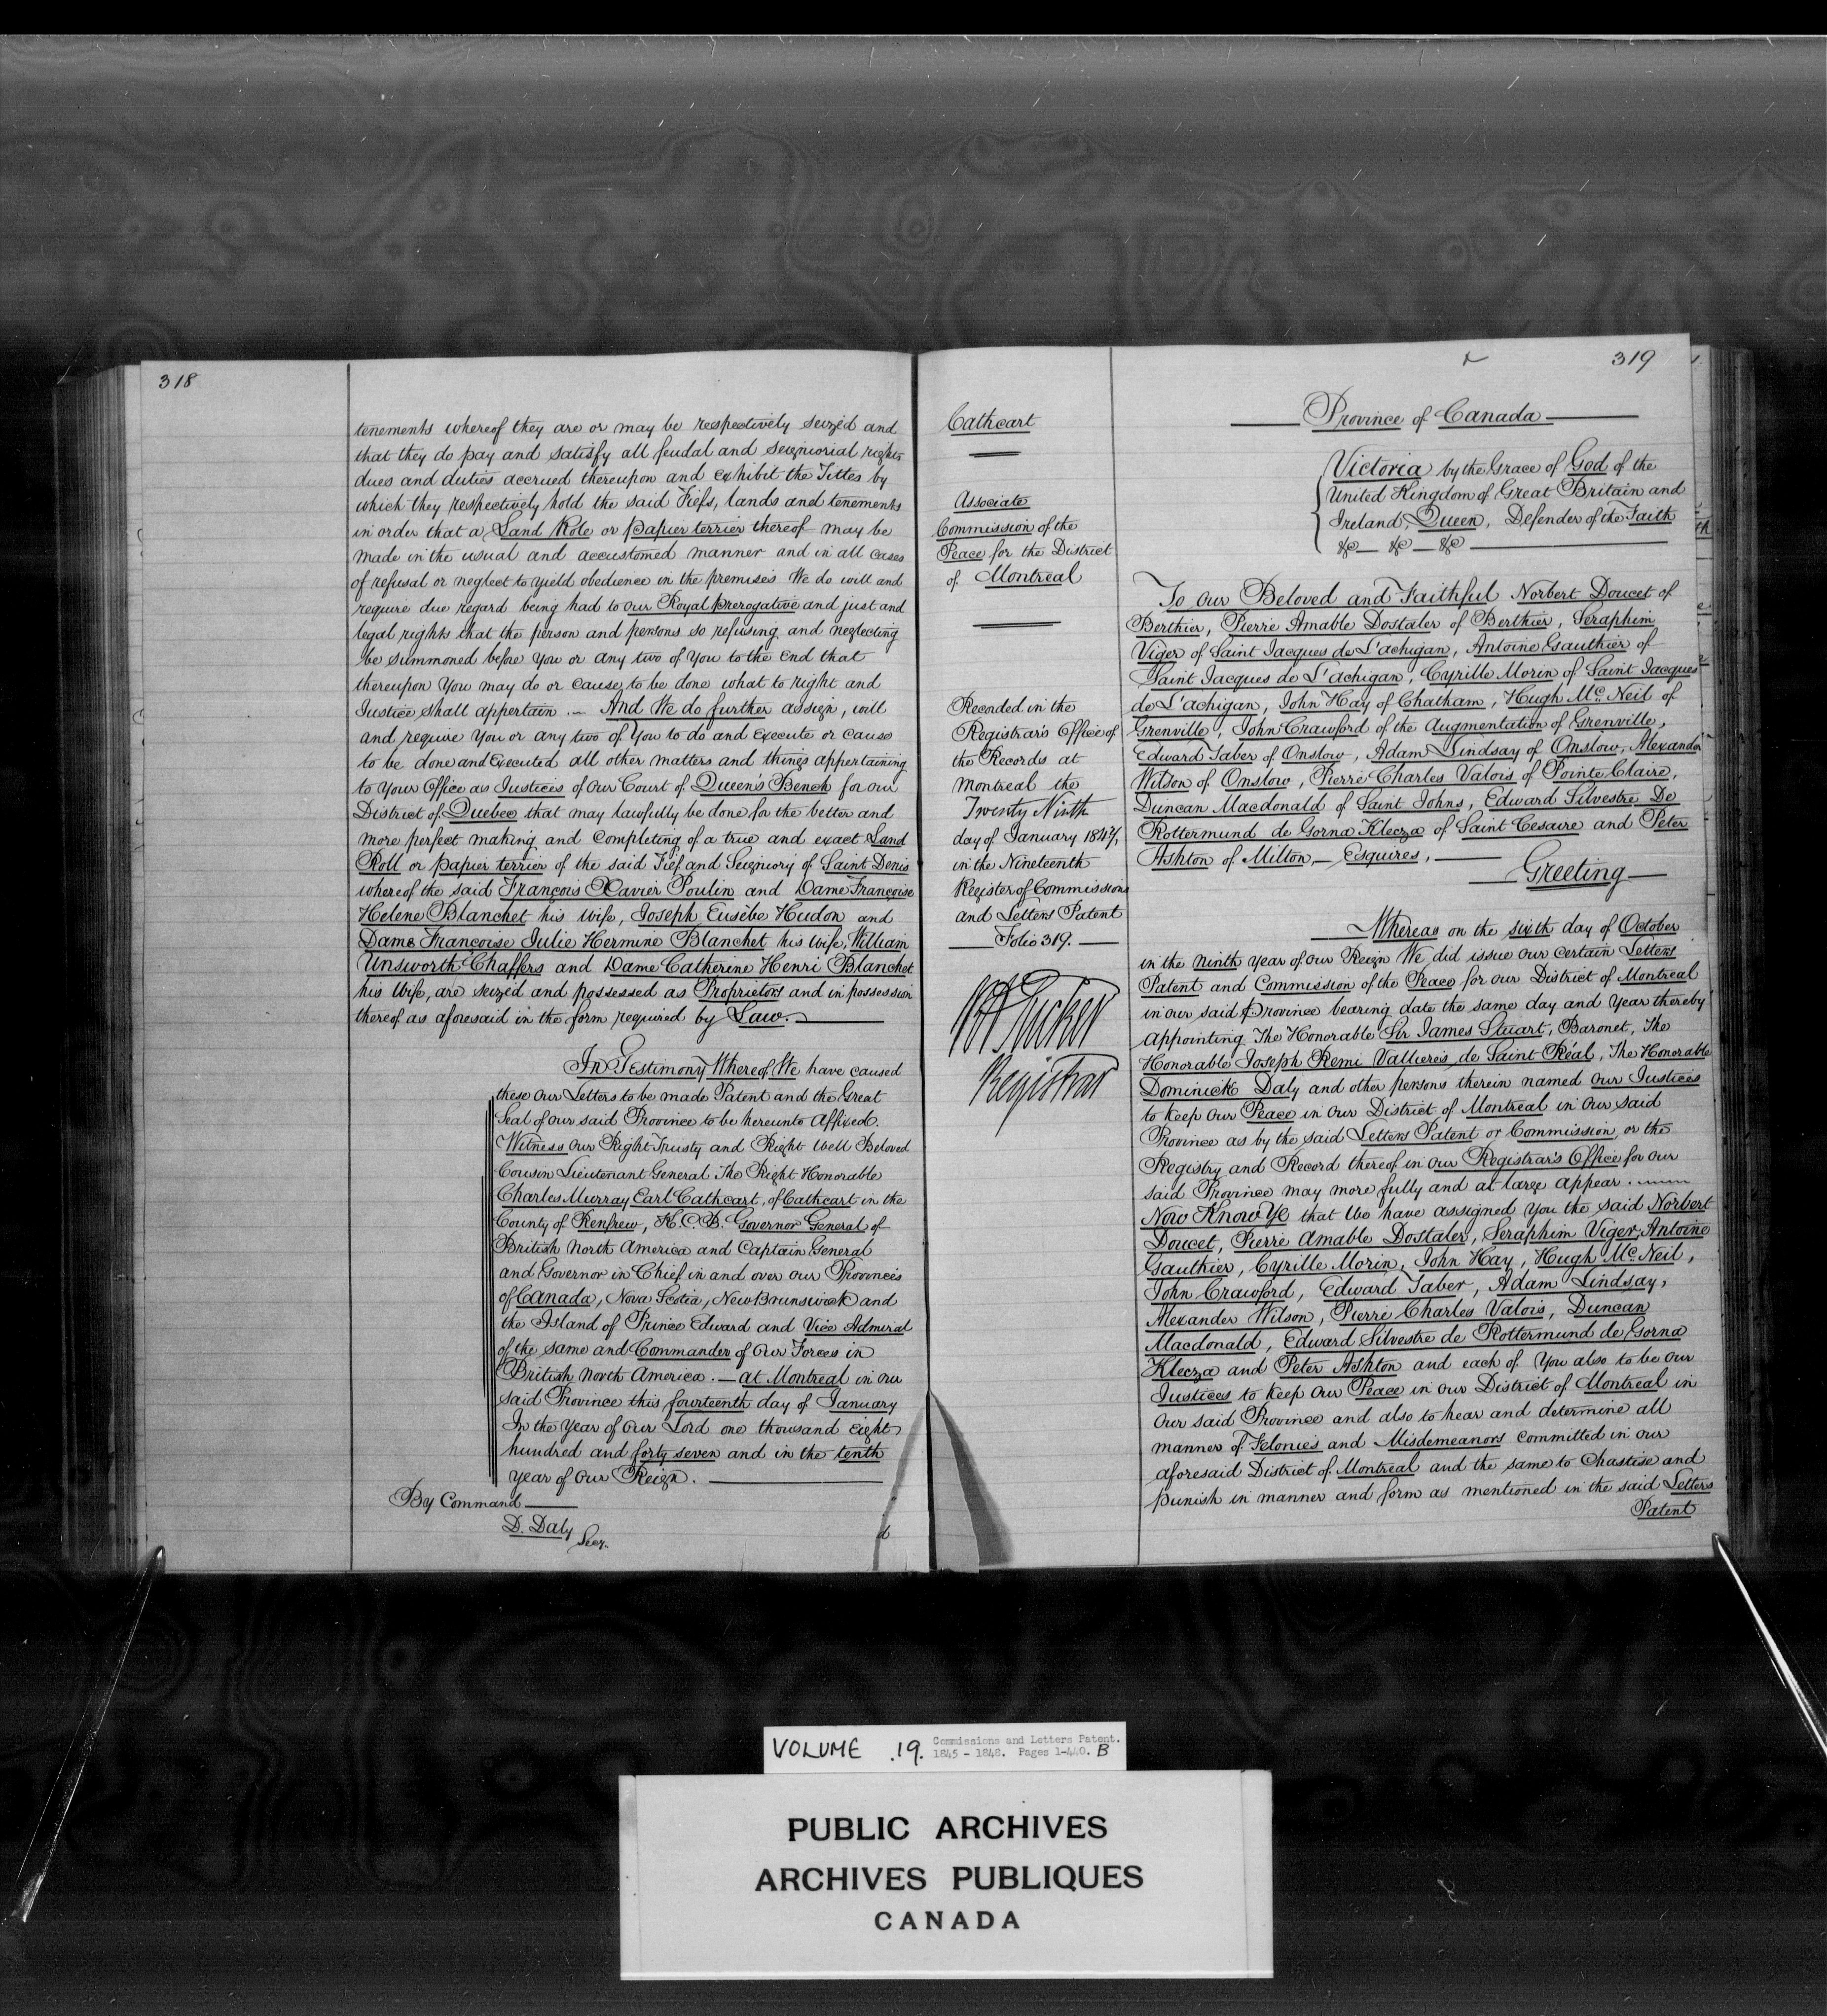 318
tenements whereof they are or may be respectively seized and
that they do pay and satisfy all feudal and seigniorial rights
dues and duties accrued thereupon and exhibit the Titles by
which they respectively hold the said Fiefs, lands and tenements
in order that a Land Role or papier terrier thereof may be
made in the usual and accustomed manner and in all cases
of refusal or neglect to yield obedience in the premises We do will and
require due regard being had to our Royal prerogative and just and
legal rights that the person and persons so refusing and neglecting
be summoned before You or any two of You to the End that
thereupon You may do or cause to be done what to right and
Justice shall appertain — And We do further assign, will
and require You or any two of You to do and Execute or cause
to be done and Executed all other matters and things appertaining
to Your Office as Justices of Our Court of Queen's Bench for our
District of Quebec that may lawfully be done for the better and
more perfect making and Completing of a true and exact Land
Roll or papier terrier of the said Fief and Seigniory of Saint Denis
whereof the said François Xavier Poulin and Dame Françoise
Helene Blanchet his wife, Joseph Eusèbe Hudon and
Dame Francoise Julie Hermine Blanchet his wife, William
Unsworth Chaffers and Dame Catherine Henri Blanchet
his Wife, are seized and possessed as Proprietors and in possession
thereof as aforesaid in the form required by Law.
In Testimony Whereof We have caused
these Our Letters to be made Patent and the Great
Seal of our said Province to be hereunto Affixed.
Witness Our Right Trusty and Right Well Beloved
Cousin Lieutenant General The Right Honorable
Charles Murray Earl Cathcart, of Cathcart in the
County of Renfrew, K.C.B. Governor General of
British North America and Captain General
and Governor in Chief in and over our Provinces
of Canada, Nova Scotia, New Brunswick and
the Island of Prince Edward and Vice Admiral
of the same and Commander of Our Forces in
British North America. — at Montreal in our
said Province this fourteenth day of January
In the Year of Our Lord one thousand Eight
hundred and forty seven and in the tenth
Year of Our Reign.
By Command
D. Daly
Secy.
319
Cathcart
Associate
Commission of the
Peace for the District
of Montreal
Recorded in the
Registrar's Office of
the Records at
Montreal the
Twenty Ninth
day of January 1847,
in the Nineteenth
Register of Commissions
and Letters Patent
Folio 319.
Tucker
Registrar
Province of Canada
Victoria by the Grace of God of the
United Kingdom of Great Britain and
Ireland, Queen, Defender of the Faith
&c — &c — &c
To Our Beloved and Faithful Norbert Doucet of
Berthier, Pierre Amable Dostaler of Berthier, Seraphim
Viger of Saint Jacques de L'achigan, Antoine Gauthier of
Saint Jacques de L'achigan, Cyrille Morin of Saint Jacques
de L'achigan, John Hay of Chatham, Hugh Mc. Neil of
Grenville, John Crawford of the Augmentation of Grenville,
Edward Taber of Onslow, Adam Lindsay of Onslow, Alexander
Wilson of Onslow, Pierre Charles Valois of Pointe Claire,
Duncan Macdonald of Saint Johns, Edward Silvestre De
Rottermund de Gorna Klecza of Saint Cesaire and Peter
Ashton of Milton, — Esquires,
Greeting
Whereas on the sixth day of October
in the Ninth Year of Our Reign We did issue our certain Letters
Patent and Commission of the Peace for our District of Montreal
in our said Province bearing date the same day and Year thereby
appointing The Honorable Sir James Stuart, Baronet, The
Honorable Joseph Remi Vallieres de Saint Réal, The Honorable
Dominick Daly and other persons therein named Our Justices
to keep Our Peace in Our District of Montreal in Our said
Province as by the said Letters Patent or Commission, or the
Registry and Record thereof in our Registrar's Office for our
said Province may more fully and at large appear.
Now Know Ye that We have assigned You the said Norbert
Doucet, Pierre Amable Dostaler, Seraphim Viger, Antoine
Gauthier, Cyrille Morin, John Hay, Hugh Mc. Neil,
John Crawford, Edward Taber, Adam Lindsay,
Alexander Wilson, Pierre Charles Valois, Duncan
Macdonald, Edward Silvestre de Rottermund de Gorna
Klecza and Peter Ashton and each of You also to be Our
Justices to keep Our Peace in Our District of Montreal in
Our said Province and also to hear and determine all
manner of Felonies and Misdemeanors Committed in our
aforesaid District of Montreal and the same to Chastise and
punish in manner and form as mentioned in the said Letters
Patent
VOLUME .19. Commissions and Letters Patent.
1845 - 1848. Pages 1-440. B
PUBLIC ARCHIVES
ARCHIVES PUBLIQUES
CANADA